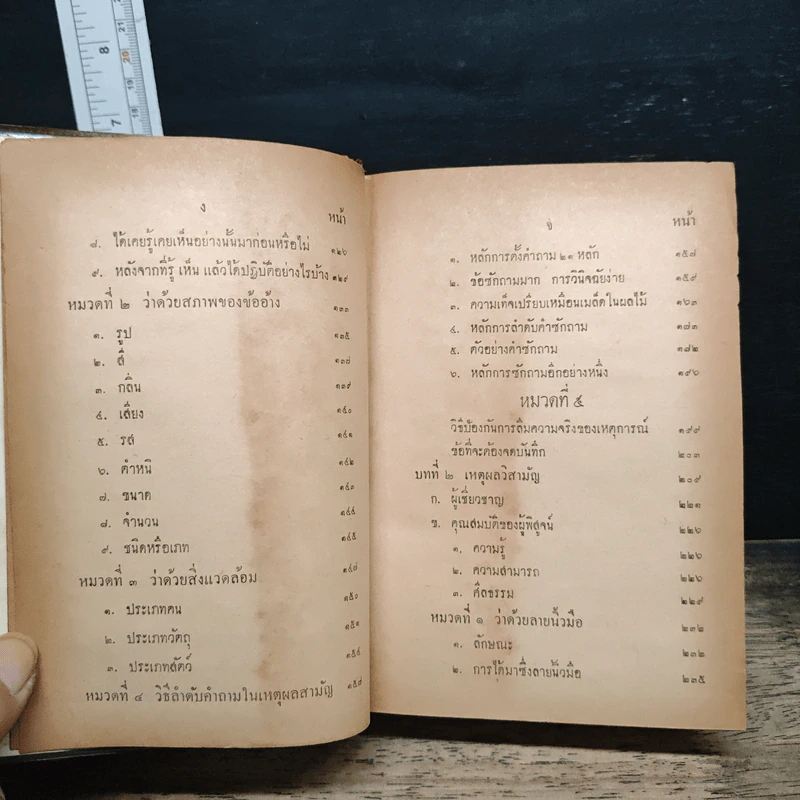 8
7
20
19
18
ง
หน้า
๘. ได้เคยรู้เคยเห็นอย่างนั้นมาก่อนหรือไม่ ๑๒๖
๙. หลังจากที่รู้ เห็น แล้วได้ปฏิบัติอย่างไรบ้าง ๑๒๙
หมวดที่ ๒ ว่าด้วยสภาพของข้ออ้าง ๑๓๓
๑. รูป ๑๓๕
๒. สี ๑๓๗
๓. กลิ่น ๑๓๙
๔. เสียง ๑๔๐
๕. รส ๑๔๑
๖. ตำหนิ ๑๔๒
๗. ขนาด ๑๔๓
๘. จำนวน ๑๔๔
๙. ชนิดหรือเภท ๑๔๕
หมวดที่ ๓ ว่าด้วยสิ่งแวดล้อม ๑๔๗
๑. ประเภทคน ๑๕๐
๒. ประเภทวัตถุ ๑๕๑
๓. ประเภทสัตว์ ๑๕๔
หมวดที่ ๔ วิธีลำดับคำถามในเหตุผลสามัญ ๑๕๗
จ
หน้า
๑. หลักการตั้งคำถาม ๒๑ หลัก ๑๕๗
๒. ข้อซักถามมาก การวินิจฉัยง่าย ๑๕๙
๓. ความเท็จเปรียบเหมือนเมล็ดในผลไม้ ๑๖๓
๔. หลักการลำดับคำซักถาม ๑๗๓
๕. ตัวอย่างคำซักถาม ๑๗๒
๖. หลักการซักถามอีกอย่างหนึ่ง ๑๙๖
หมวดที่ ๕
วิธีป้องกันการลืมความจริงของเหตุการณ์ ๑๙๙
ข้อที่จะต้องจดบันทึก ๒๐๓
บทที่ ๒ เหตุผลวิสามัญ ๒๐๙
ก. ผู้เชี่ยวชาญ ๒๒๑
ข. คุณสมบัติของผู้พิสูจน์ ๒๒๖
๑. ความรู้ ๒๒๖
๒. ความสามารถ ๒๒๖
๓. ศีลธรรม ๒๒๙
หมวดที่ ๑ ว่าด้วยลายนิ้วมือ ๒๓๒
๑. ลักษณะ ๒๓๒
๒. การได้มาซึ่งลายนิ้วมือ ๒๓๕